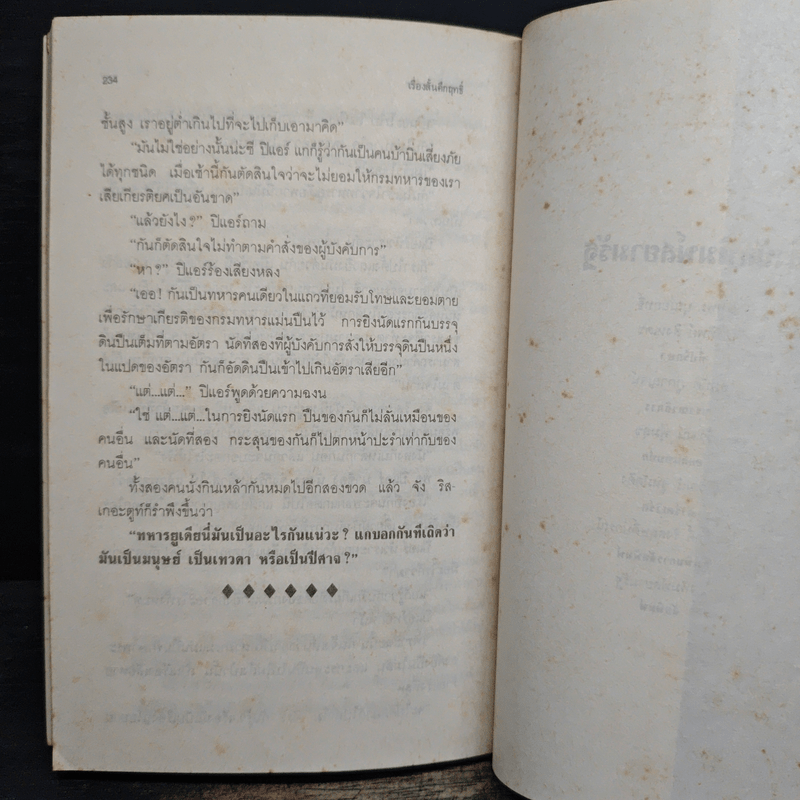 234
เรื่องสั้นคึกฤทธิ์
ชั้นสูง เราอยู่ต่ำเกินไปที่จะไปเก็บเอามาคิด"
"มันไม่ใช่อย่างนั้นน่ะซี ปิแอร์ แกก็รู้ว่ากันเป็นคนบ้าบิ่นเสี่ยงภัย
ได้ทุกชนิด เมื่อเช้านี้กันตัดสินใจว่าจะไม่ยอมให้กรมทหารของเรา
เสียเกียรติยศเป็นอันขาด"
"แล้วยังไง?" ปิแอร์ถาม
"กันก็ตัดสินใจไม่ทำตามคำสั่งของผู้บังคับการ"
"หา?" ปิแอร์ร้องเสียงหลง
"เออ! กันเป็นทหารคนเดียวในแถวที่ยอมรับโทษและยอมตาย
เพื่อรักษาเกียรติของกรมทหารแม่นปืนไว้ การยิงนัดแรกกันบรรจุ
ดินปืนเต็มที่ตามอัตรา นัดที่สองที่ผู้บังคับการสั่งให้บรรจุดินปืนหนึ่ง
ในแปดของอัตรา กันก็อัดดินปืนเข้าไปเกินอัตราเสียอีก"
"แต่...แต่..." ปิแอร์พูดด้วยความฉงน
"ใช่ แต่...แต่...ในการยิงนัดแรก ปืนของกันก็ไม่ลั่นเหมือนของ
คนอื่น และนัดที่สอง กระสุนของกันก็ไปตกหน้าปะรำเท่ากับของ
คนอื่น"
ทั้งสองคนนั่งกินเหล้ากันหมดไปอีกสองขวด แล้ว จัง ริส-
เกอะดูท์ก็รำพึงขึ้นว่า
"ทหารยูเดียนี่มันเป็นอะไรกันแน่วะ? แกบอกกันทีเถิดว่า
มันเป็นมนุษย์ เป็นเทวดา หรือเป็นปีศาจ?"